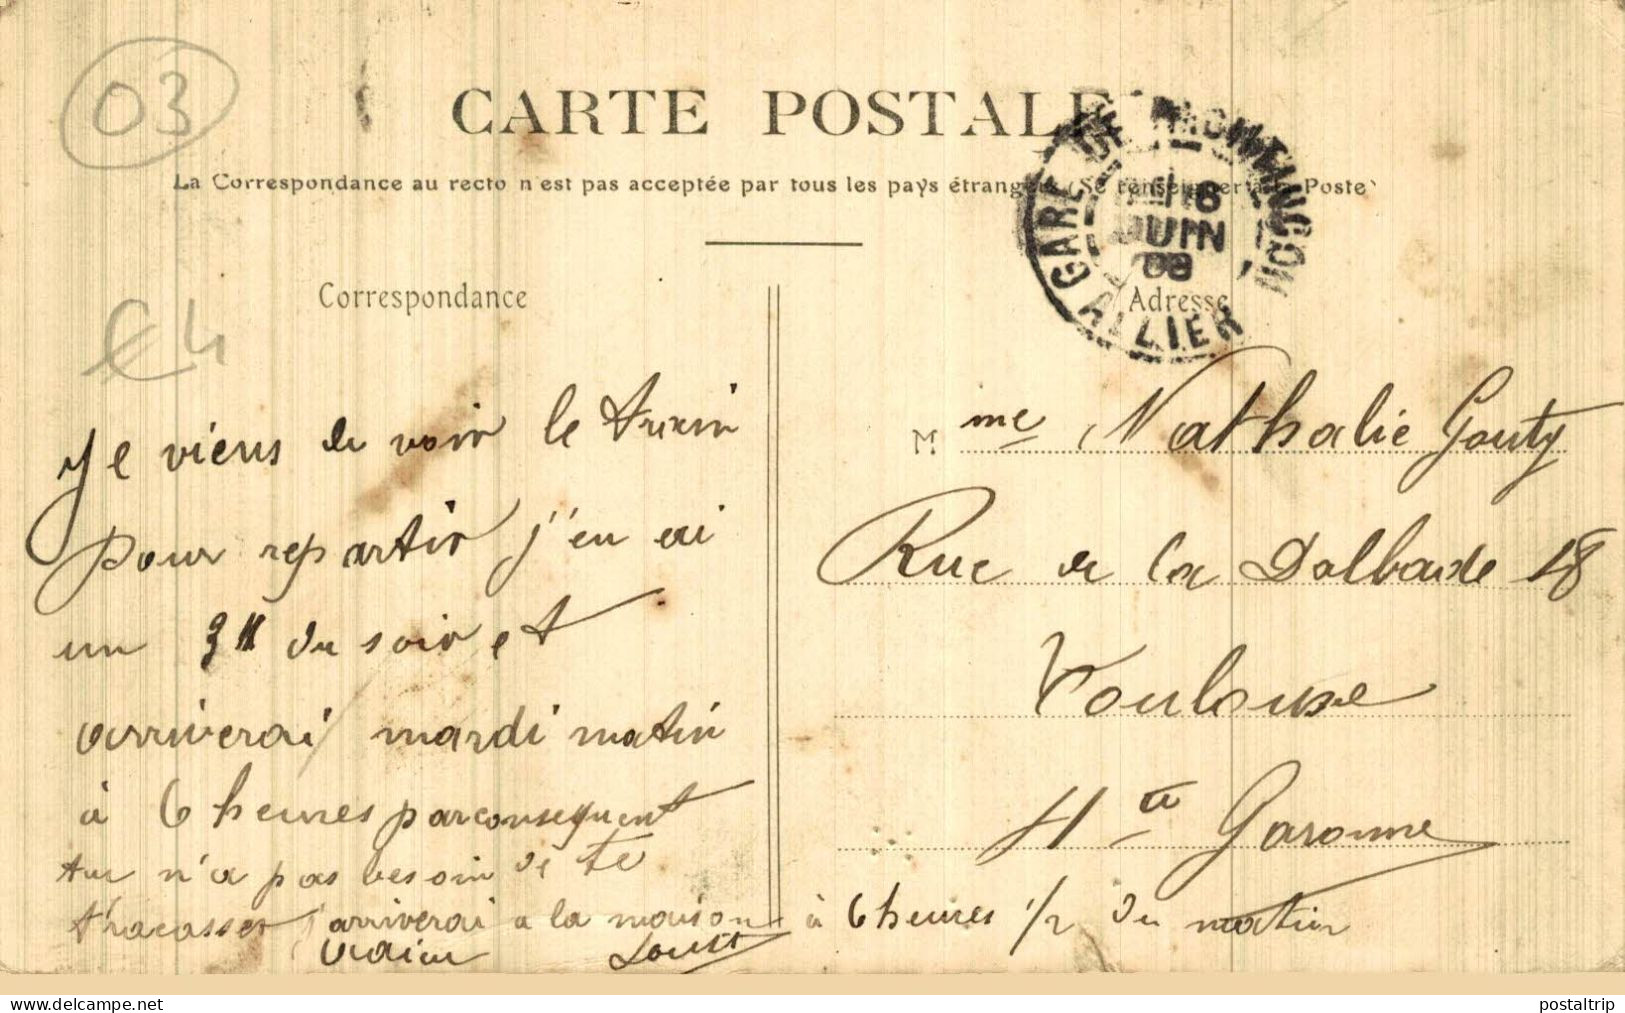 03
CARTE POSTALE
La Correspondance au recto n'est pas acceptée par tous les pays étrangers (Se renseigner à la Poste)
GARE DE MONTLUÇON
JUIN
08
ALLIER
Correspondance
Adresse
€4
Je viens de voir le train
pour repartir j'en ai
un 3H du soir et
arriverai mardi matin
à 6 heures parconsequent
tu n'a pas besoin de te
thracasser j'arriverai a la maison à 6 heures 1/2 du matin
Mme Nathalie Gouty
Rue de la Dalbade 18
Toulouse
Hte Garonne
postaltrip
www.delcampe.net